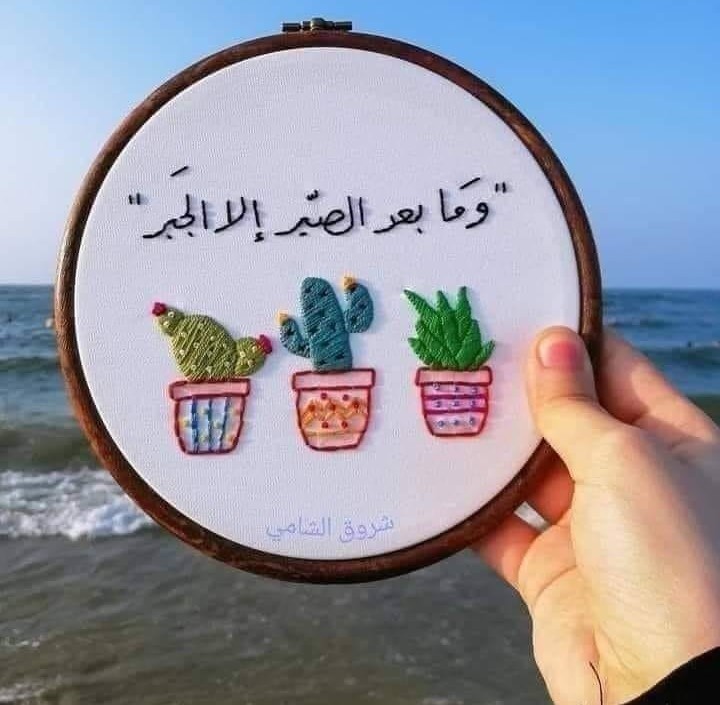 "وَما بعد الصبّر إلا الجَبر"
شروق الشامي